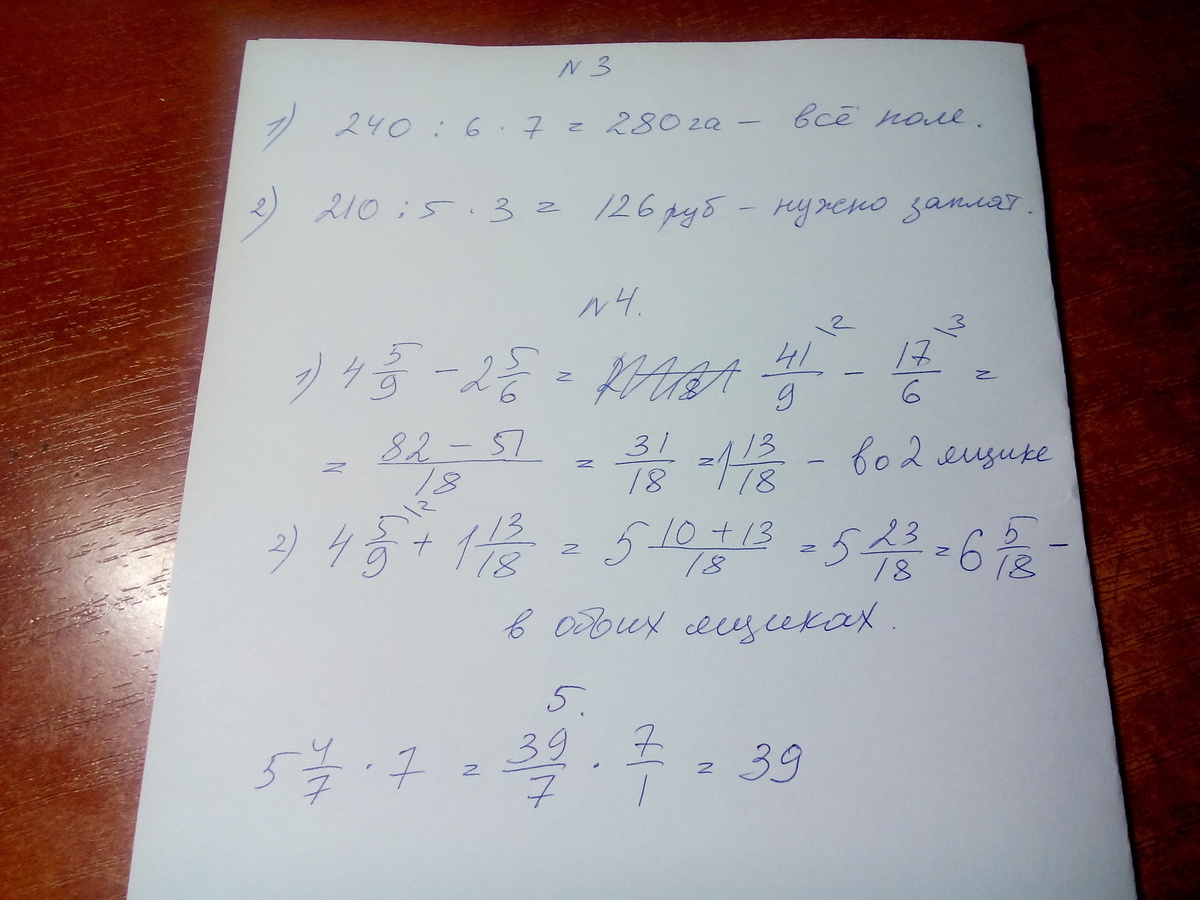 N 3
1) 240 : 6 · 7 = 280 га – всё поле.
2) 210 : 5 · 3 = 126 руб – нужно заплат.
N 4.
1) 4 5/9 – 2 5/6 = 41/9 \2 – 17/6 \3 =
= (82 – 51)/18 = 31/18 = 1 13/18 – во 2 ящике
2) 4 5/9 \2 + 1 13/18 = 5 (10 + 13)/18 = 5 23/18 = 6 5/18 –
в обоих ящиках.
5.
5 4/7 · 7 = 39/7 · 7/1 = 39